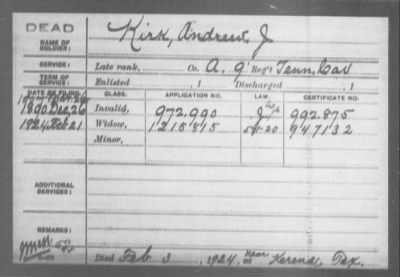 DEAD
NAME OF SOLDIER: Kirk, Andrew, J
SERVICE: Late rank, Co. A, 9" Reg't Tenn, Cav
TERM OF SERVICE: Enlisted , 1 Discharged , 1
DATE OF FILING. CLASS. APPLICATION NO. LAW. CERTIFICATE NO.
1890 Dec 26 Invalid, 972,990 992.875
1924 Feb 21 Widow, 1215815 947132
Minor,
ADDITIONAL SERVICES:
REMARKS:
Died Feb 3, 1924, near at Kerens, Tex.